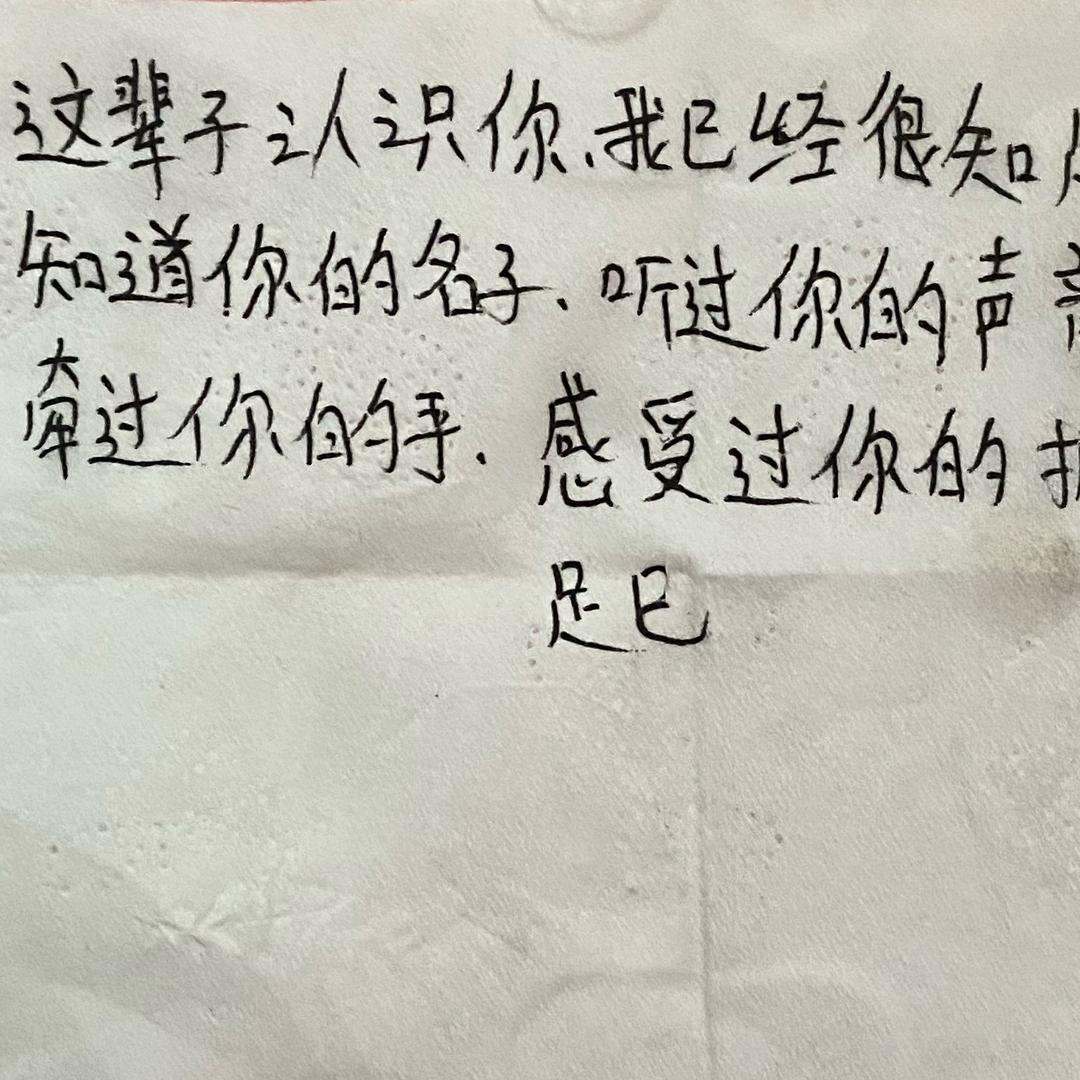 这辈子认识你、我已经很知
知道你的名子、听过你的声
牵过你的手. 感受过你的
足已